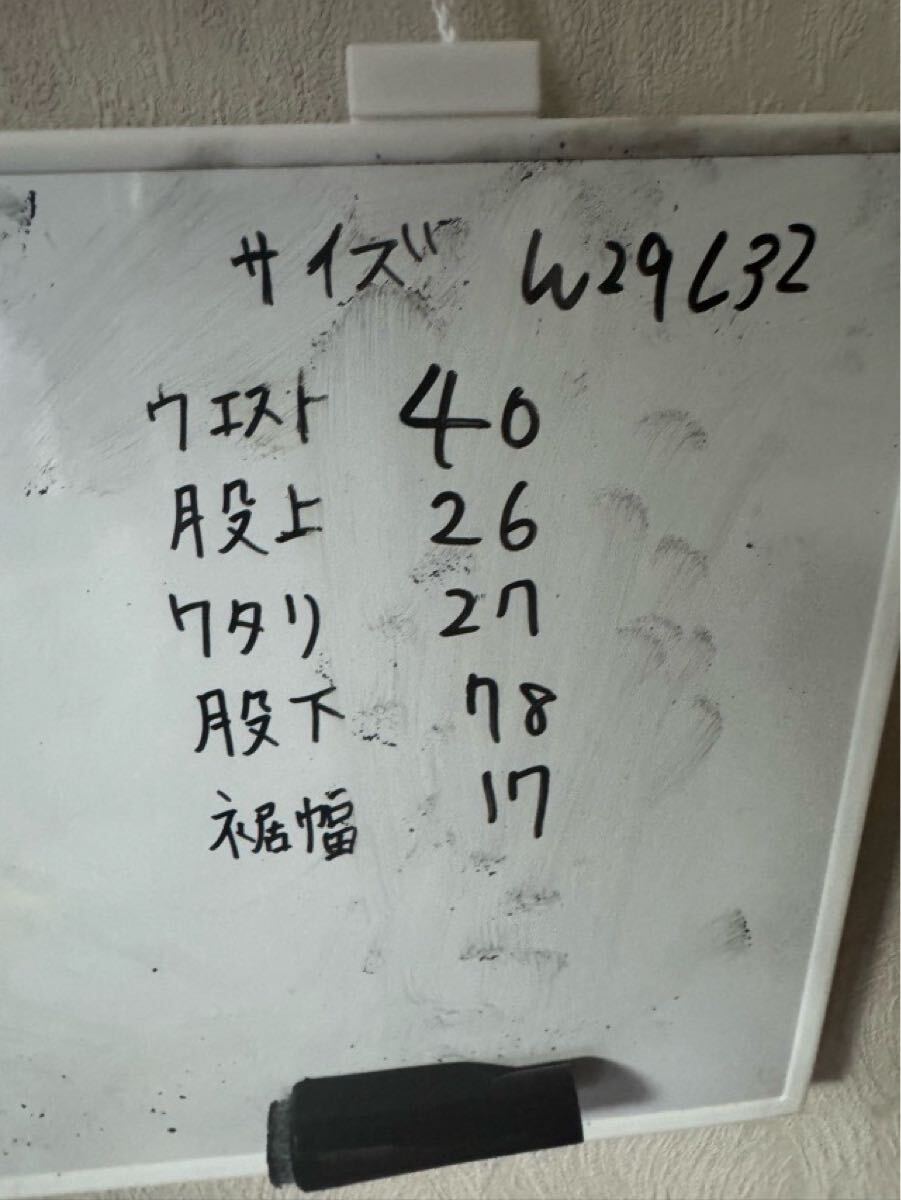 サイズ W29L32
ウエスト 40
股上 26
ワタリ 27
股下 78
裾幅 17